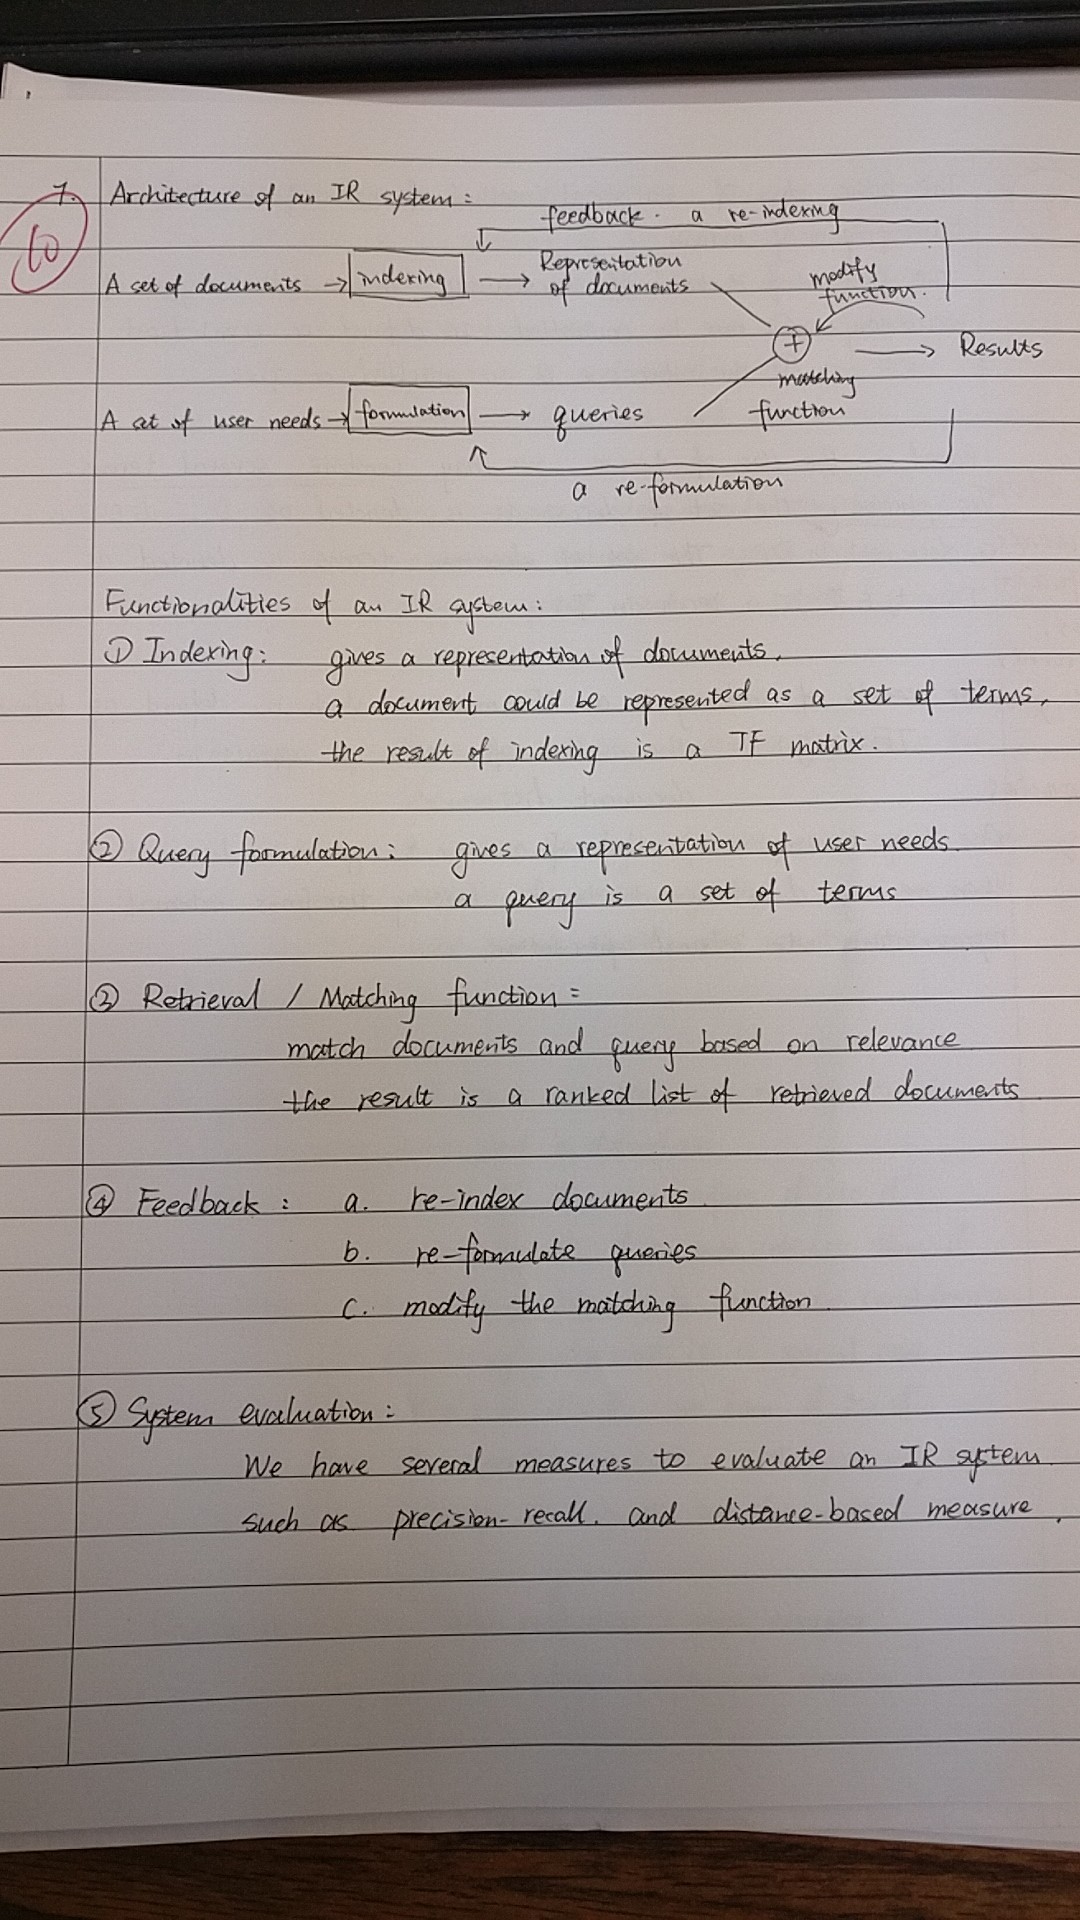 7. Architecture of an IR system:
10
feedback. a re-indexing
A set of documents → indexing → Representation of documents
modify function.
+ → Results
matching function
A set of user needs → formulation → queries
a re-formulation
Functionalities of an IR system:
① Indexing: gives a representation of documents,
a document could be represented as a set of terms,
the result of indexing is a TF matrix.
② Query formulation: gives a representation of user needs.
a query is a set of terms
③ Retrieval / Matching function:
match documents and query based on relevance
the result is a ranked list of retrieved documents
④ Feedback: a. re-index documents
b. re-formulate queries
c. modify the matching function
⑤ System evaluation:
We have several measures to evaluate an IR system
such as precision-recall. and distance-based measure.